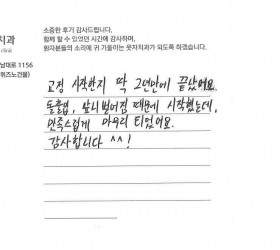 소중한 후기 감사드립니다.
함께 할 수 있었던 시간에 감사하며,
환자분들의 소리에 귀 기울이는 웃자치과가 되도록 하겠습니다.
치과
clinic
남대로 1156
위즈노건물)
교정 시작한지 딱 2년만에 끝났어요.
돌출입, 앞니 벌어짐 때문에 시작했는데,
만족스럽게 마무리 되었어요.
감사합니다 ^^!